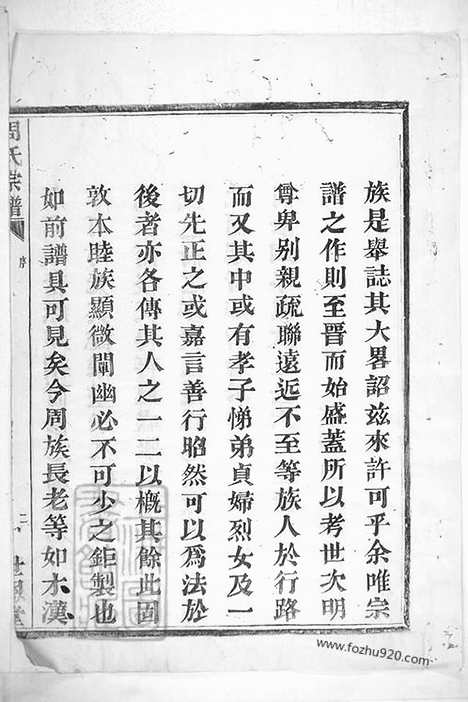 族是舉誌其大畧詔兹來許可乎余唯宗
譜之作則至晋而始盛蓋所以考世次明
尊卑别親疏聯遠近不至等族人於行路
而又其中或有孝子悌弟貞婦烈女及一
切先正之或嘉言善行昭然可以爲法於
後者亦各傳其人之一二以概其餘此固
敦本睦族顯微闡幽必不可少之鉅製也
如前譜具可見矣今周族長老等如木漢
周氏宗譜
序
二
www.fozhu920.com